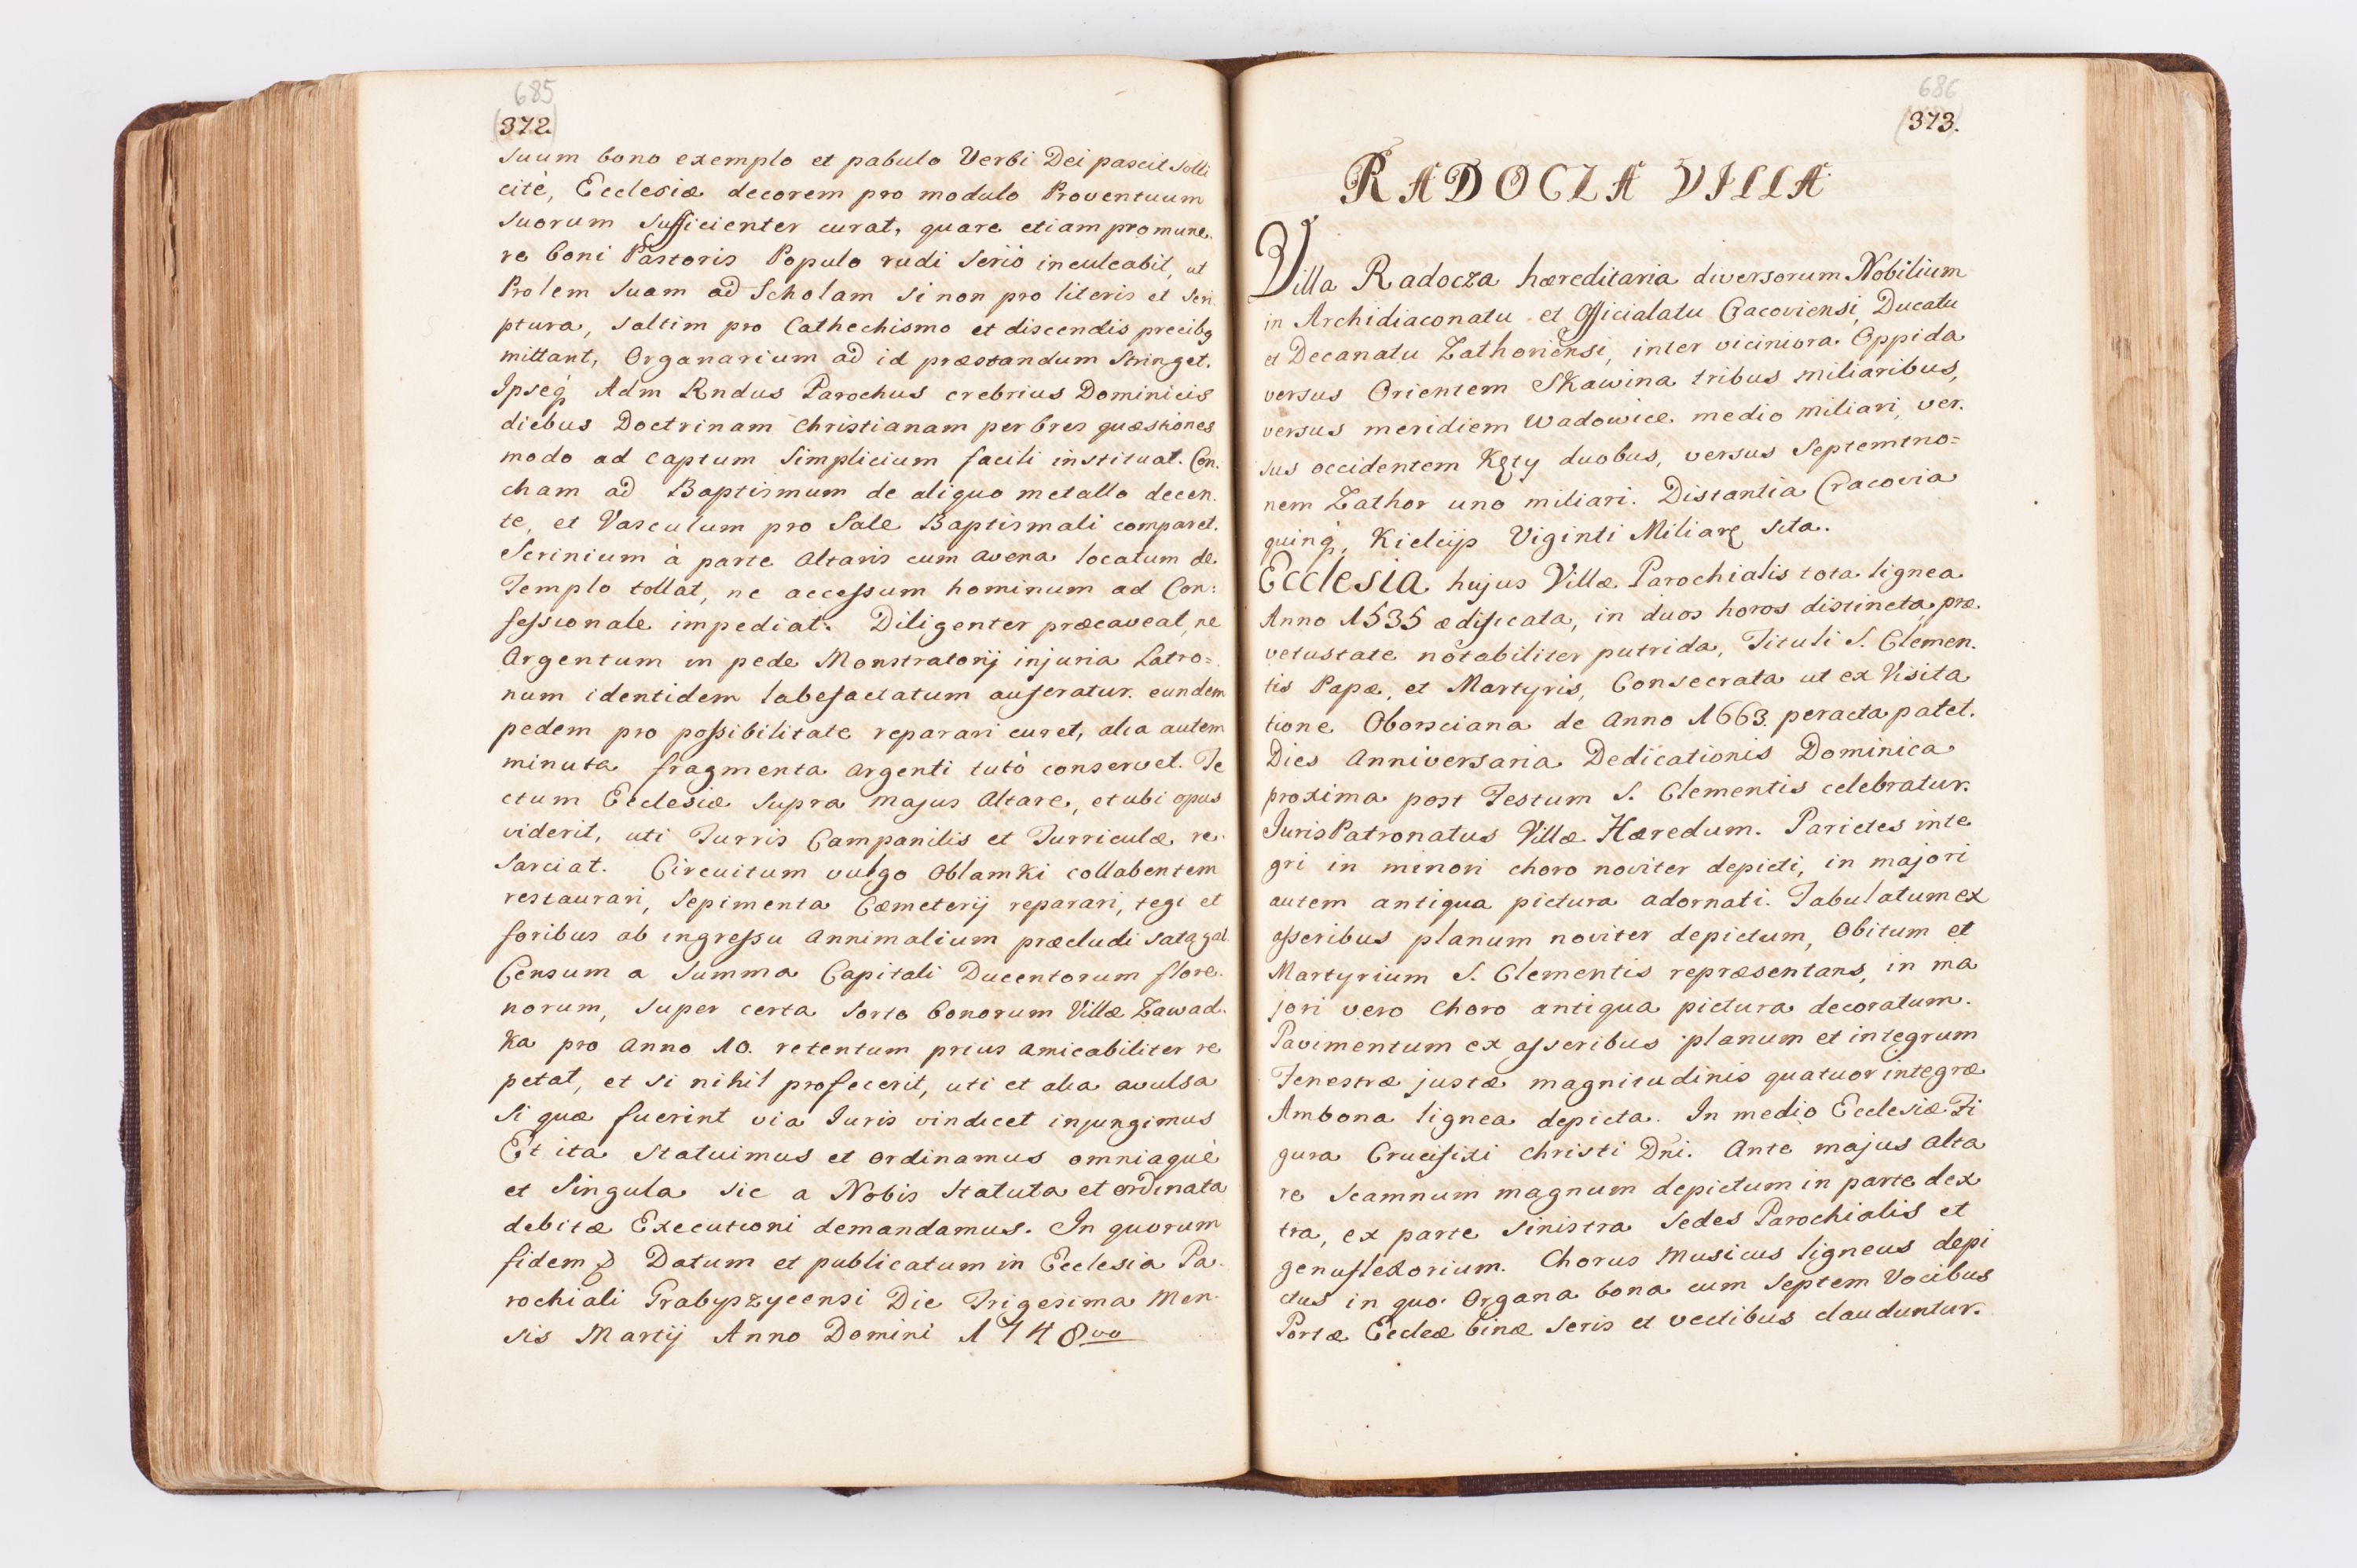 685
(372.)
suum bono exemplo et pabulo Verbi Dei pascit solli
citè, Ecclesiæ decorem pro modulo Proventuum
suorum sufficienter curat, quare etiam pro mune.
re boni Pastoris Populo rudi seriò inculcabit, ut
Prolem suam ad Scholam si non pro literis et scri
ptura, saltim pro Cathechismo et discendis precibꝫ
mittant, Organarium ad id præstandum stringet.
Ipseqꝫ Adm Rndus Parochus crebrius Dominicis
diebus Doctrinam Christianam per bres quæstiones
modo ad captum Simplicium facili instituat. Con.
cham ad Baptismum de aliquo metallo decen.
te, et Vasculum pro Sale Baptismali comparet.
Scrinium à parte Altaris cum avena locatum de
Templo tollat, ne accessum hominum ad Con:
fessionale impediat. Diligenter præcaveat, ne
Argentum in pede Monstratorij injuria Latro=
num identidem labefactatum auferatur. eundem
pedem pro possibilitate reparari curet, alia autem
minuta fragmenta argenti tutò conservet. Te
ctum Ecclesiæ supra majus Altare, et ubi opus
viderit, uti Turris Campanilis et Turriculæ re.
sarciat. Circuitum vulgo Oblamki collabentem
restaurari, Sepimenta Cæmeterij reparari, tegi et
foribus ab ingressu annimalium præcludi satagat.
Censum a Summa Capitali Ducentorum flore.
norum, super certa sorte bonorum Villæ Zawad.
ka pro Anno 10. retentum prius amicabiliter re
petat, et si nihil profecerit, uti et alia avulsa
si quæ fuerint via Juris vindicet injungimus
Et ita statuimus et ordinamus omniaquè
et singula sic a Nobis statuta et ordinata
debitæ Executioni demandamus. In quorum
fidem Datum et publicatum in Ecclesia Pa.
rochiali Grabyszycensi Die Trigesima Men.
sis Martij Anno Domini 1748vo
686
(373.)
RADOCZA VILLA
Villa Radocza hæreditaria diversorum Nobilium
in Archidiaconatu et Officialatu Cracoviensi, Ducatu
et Decanatu Zathoriensi, inter viciniora Oppida
versus Orientem Skawina tribus miliaribus,
versus meridiem Wadowice medio miliari, ver.
sus occidentem Kęty duobus, versus Septemtrio=
nem Zathor uno miliari. Distantia Cracovia
quinqꝫ, Kielcijs Viginti Miliarꝫ sita.
Ecclesia hujus Villæ Parochialis tota lignea
Anno 1535 ædificata, in duos horos distincta, præ
vetustate notabiliter putrida, Tituli S. Clemen.
tis Papæ, et Martyris, Consecrata ut ex Visita
tione Oborsciana de Anno 1663. peracta patet.
Dies Anniversaria Dedicationis Dominica
proxima post Festum S. Clementis celebratur.
Juris Patronatus Villæ Hæredum. Parietes inte
gri in minori choro noviter depicti, in majori
autem antiqua pictura adornati. Tabulatum ex
asseribus planum noviter depictum, Obitum et
Martyrium S. Clementis repræsentans, in ma
jori vero Choro antiqua pictura decoratum.
Pavimentum ex asseribus planum et integrum
Fenestræ justæ magnitudinis quatuor integræ
Ambona lignea depicta. In medio Ecclesiæ Fi
gura Crucifixi Christi Dni. Ante majus alta
re Scamnum magnum depictum in parte dex
tra, ex parte sinistra Sedes Parochialis et
genuflexorium. Chorus Musicus ligneus depi
ctus in quo Organa bona cum septem Vocibus
Portæ Eccleæ binæ seris et vectibus clauduntur.